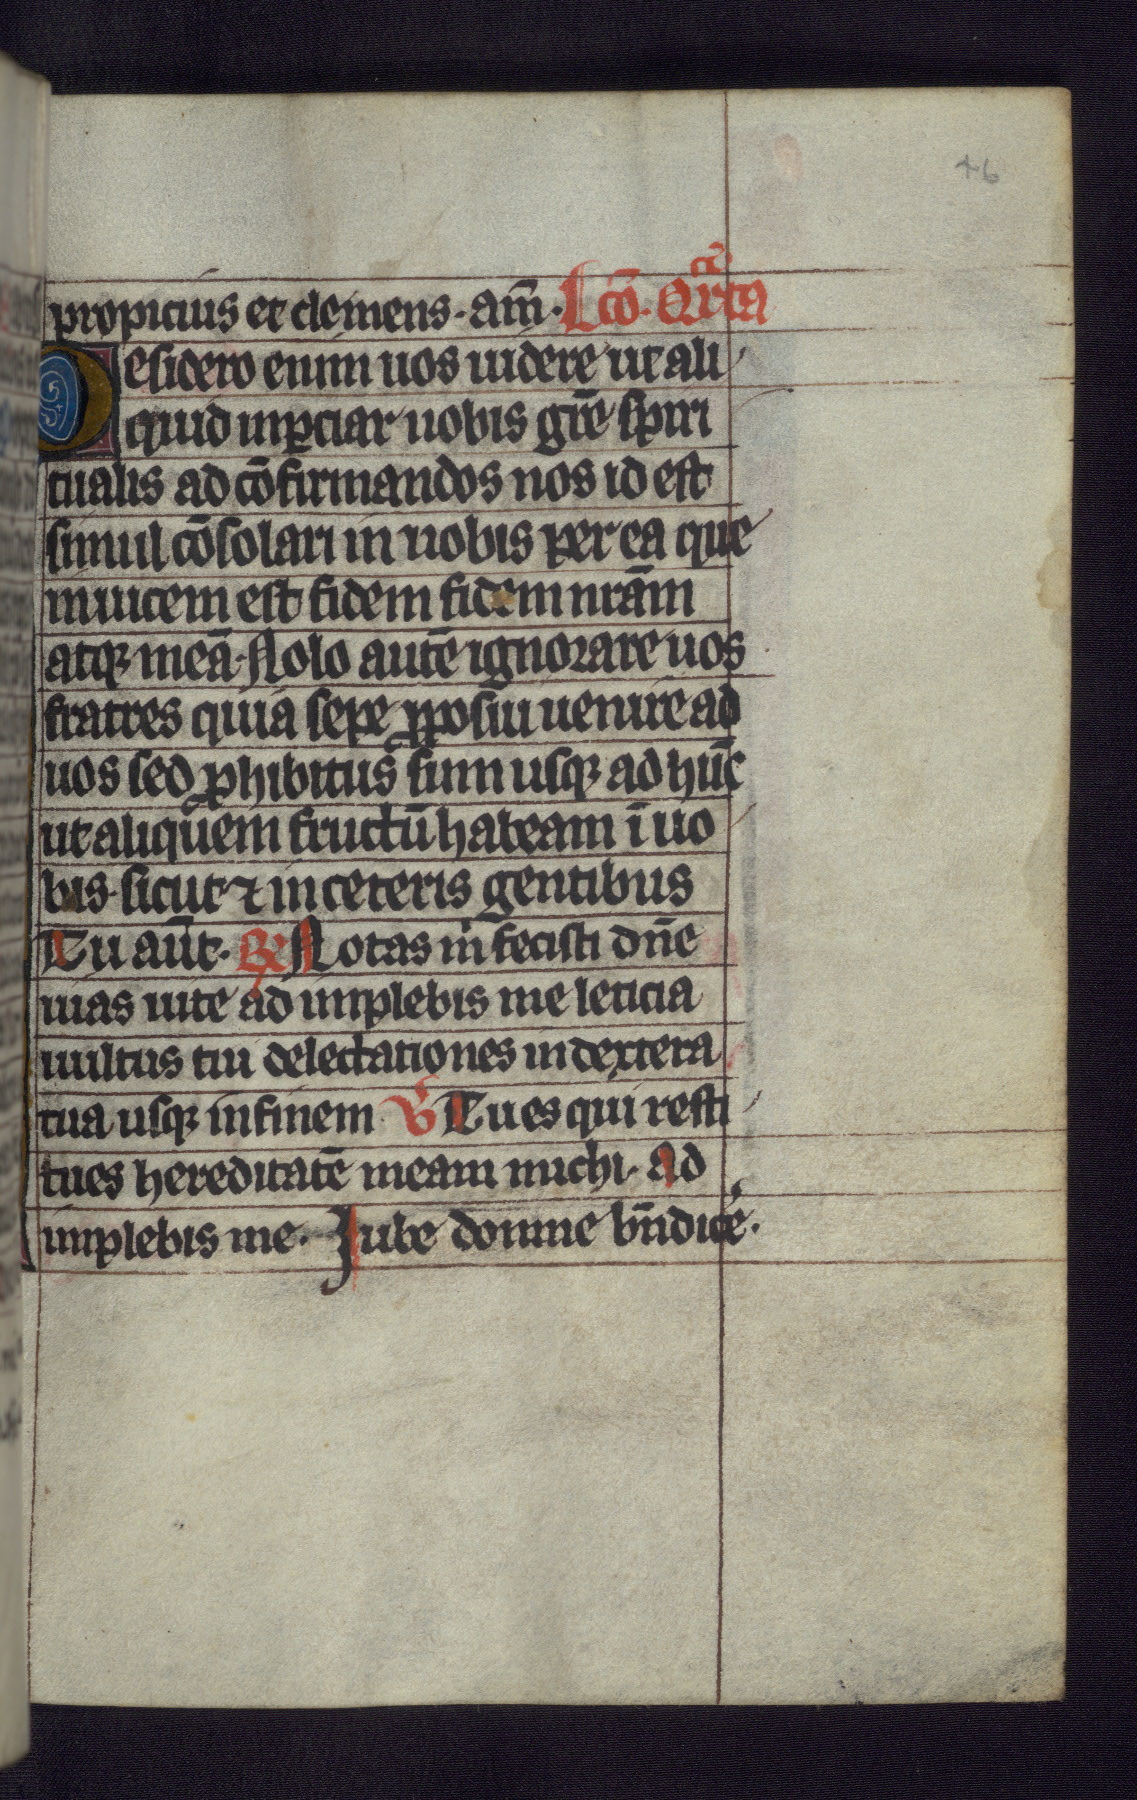 46
propicius et clemens. am̄. Lcō. Qrta
Desidero enim uos uidere ut ali
quid inꝑciar uobis gr̄e spiri
tualis ad cōfirmandos nos id est
simul cōsolari in uobis per ea que
inuicem est fidem fidem nrām
atqꝫ meā. Nolo autē ignorare uos
fratres quia sepe ꝓposui uenire ad
uos sed ꝓhibitus sum usqꝫ ad huc̄
ut aliquem fructū habeam ī uo
bis. sicut ⁊ in ceteris gentibus
Tu aūt. ℞ Notas m̄ fecisti dn̄e
uias uite ad implebis me leticia
uultus tui delectationes in dextera
tua usqꝫ in finem ℣ Tu es qui resti
tues hereditatē meam michi. ad
implebis me. Iube domne bn̄dicē.